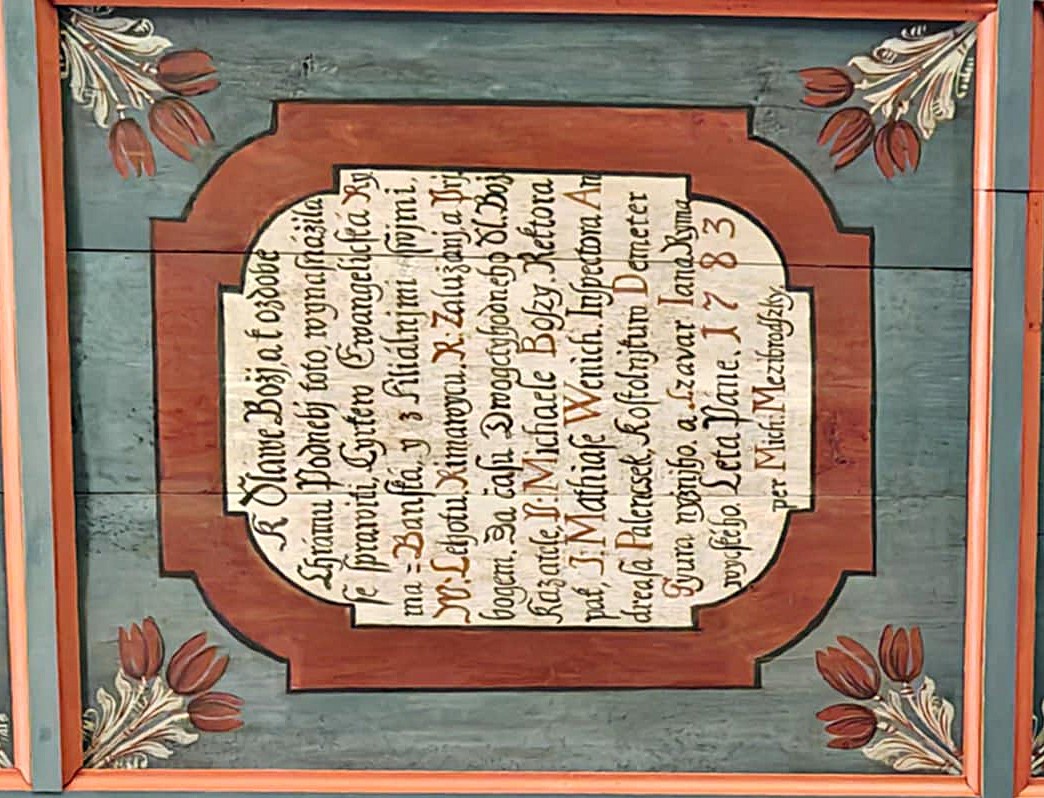 K Slawe Božj a k ozdobě
Chrámu Podnebj toto wynasnažila
se sprawiti, Cyrkew Ewangelická Ry
ma=Banská, y z Filiálnjmi swými,
W. Lehotu, Rimawycu, R: Zalužanj, a Prj
bogem. Za času Dwogctyhodneho Sl. Božj
Kazatele, P: Michaele Boszy. Rektora
pak, J: Mathiase Wenich. Inspectora An
dreasa Palencsek, Kostolnjkuw Demeter
Gyura nyžnjho. a Lzavar Jana Ryma
wyckého. Leta Páně. 1783
per Mich: Mezibrodszky,